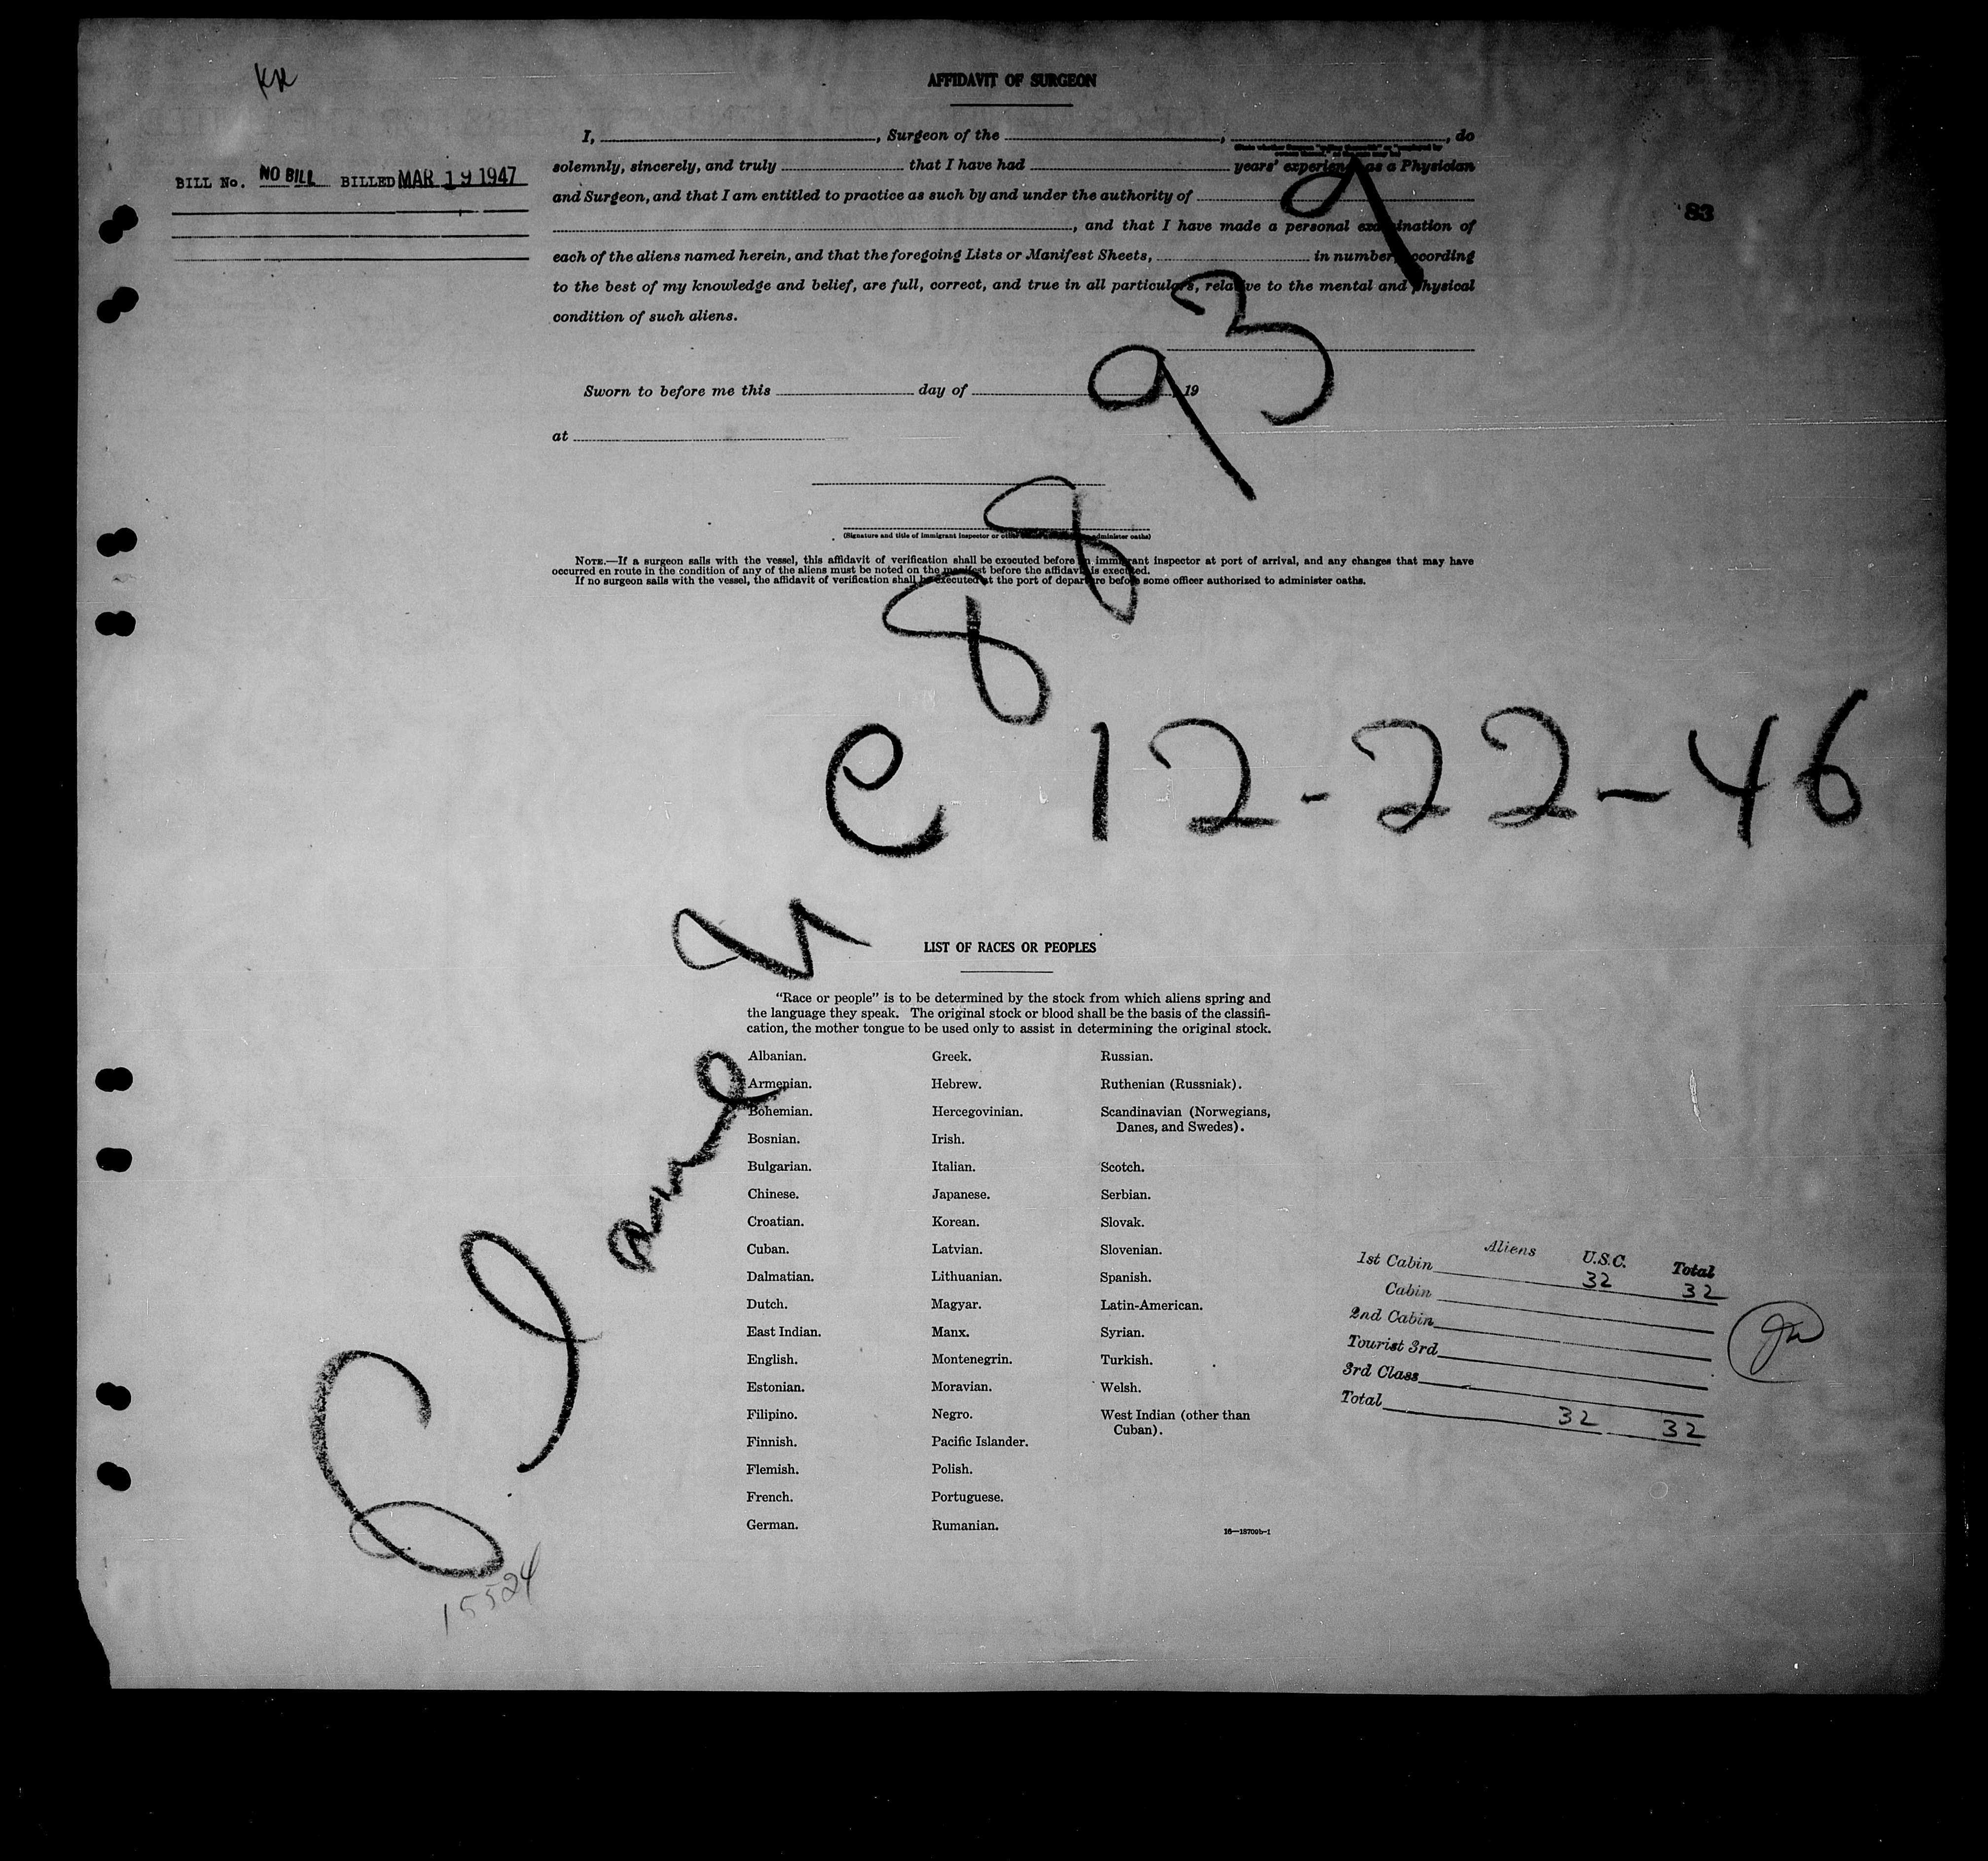 KK
AFFIDAVIT OF SURGEON
I, , Surgeon of the , , do
solemnly, sincerely, and truly that I have had years' experience as a Physician
and Surgeon, and that I am entitled to practice as such by and under the authority of
, and that I have made a personal examination of
each of the aliens named herein, and that the foregoing Lists or Manifest Sheets, in number, according
to the best of my knowledge and belief, are full, correct, and true in all particulars, relative to the mental and physical
condition of such aliens.
BILL No. NO BILL BILLED MAR 19 1947
83
Sworn to before me this day of , 19
at
(Signature and title of immigrant inspector or other administer oaths)
NOTE.—If a surgeon sails with the vessel, this affidavit of verification shall be executed before an immigrant inspector at port of arrival, and any changes that may have
occurred en route in the condition of any of the aliens must be noted on the manifest before the affidavit is executed.
If no surgeon sails with the vessel, the affidavit of verification shall be executed at the port of departure before some officer authorized to administer oaths.
88939
12-22-46
LIST OF RACES OR PEOPLES
"Race or people" is to be determined by the stock from which aliens spring and
the language they speak. The original stock or blood shall be the basis of the classifi-
cation, the mother tongue to be used only to assist in determining the original stock.
Albanian.
Armenian.
Bohemian.
Bosnian.
Bulgarian.
Chinese.
Croatian.
Cuban.
Dalmatian.
Dutch.
East Indian.
English.
Estonian.
Filipino.
Finnish.
Flemish.
French.
German.
Greek.
Hebrew.
Hercegovinian.
Irish.
Italian.
Japanese.
Korean.
Latvian.
Lithuanian.
Magyar.
Manx.
Montenegrin.
Moravian.
Negro.
Pacific Islander.
Polish.
Portuguese.
Rumanian.
Russian.
Ruthenian (Russniak).
Scandinavian (Norwegians,
Danes, and Swedes).
Scotch.
Serbian.
Slovak.
Slovenian.
Spanish.
Latin-American.
Syrian.
Turkish.
Welsh.
West Indian (other than
Cuban).
16—18709b-1
Aliens U.S.C. Total
1st Cabin 32 32
Cabin
2nd Cabin
Tourist 3rd
3rd Class
Total 32 32
15524